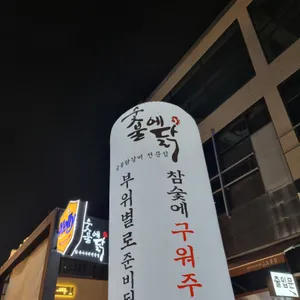 숯불에닭
숯불닭갈비 전문점
참숯에구워주
부위별로준비되
숯불에닭
출입문